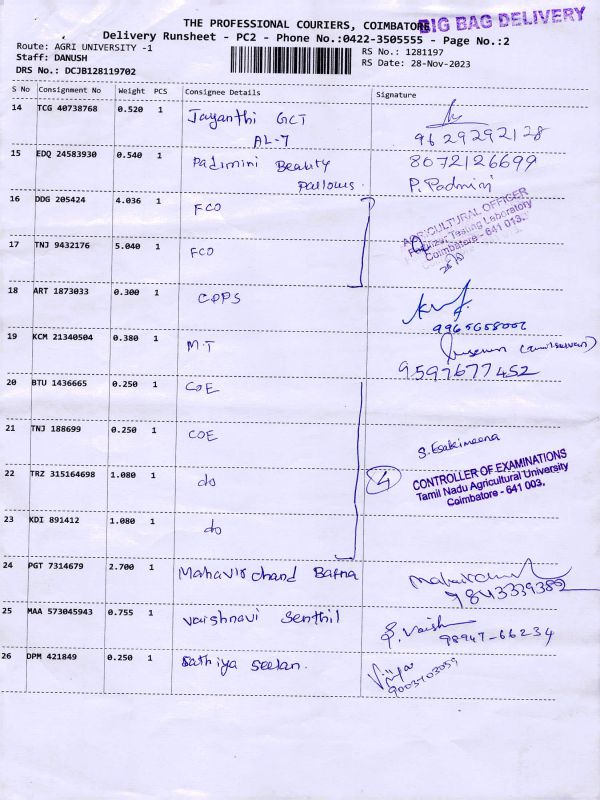 THE PROFESSIONAL COURIERS, COIMBATORE
BIG BAG DELIVERY
Delivery Runsheet - PC2 - Phone No.:0422-3505555 - Page No.:2
Route: AGRI UNIVERSITY -1
RS No.: 1281197
Staff: DANUSH
RS Date: 28-Nov-2023
DRS No.: DCJB128119702
S No Consignment No Weight PCS Consignee Details Signature
14 TCG 40738768 0.520 1 Jayanthi GCT
AL-7
9629292128
15 EDQ 24583930 0.540 1 Padimini Beauty
Parlours.
8072126699
P. Padmini
16 DDG 205424 4.036 1 FCO
AGRICULTURAL OFFICER
Fertilizer Testing Laboratory
Coimbatore - 641 013.
17 TNJ 9432176 5.040 1 FCO
18 ART 1873033 0.300 1 CPPS
19 KCM 21340504 0.380 1 M.T
9597677452
20 BTU 1436665 0.250 1 COE
21 TNJ 188699 0.250 1 COE
S. Esakimeena
22 TRZ 315164698 1.080 1 do
4
CONTROLLER OF EXAMINATIONS
Tamil Nadu Agricultural University
Coimbatore - 641 003.
23 KDI 891412 1.080 1 do
24 PGT 7314679 2.700 1 Mahavir chand Bafna
9843339382
25 MAA 573045943 0.755 1 Vaishnavi Senthil
S. Vaish
98947-66234
26 DPM 421849 0.250 1 Sathiya Seelan.
9003703059